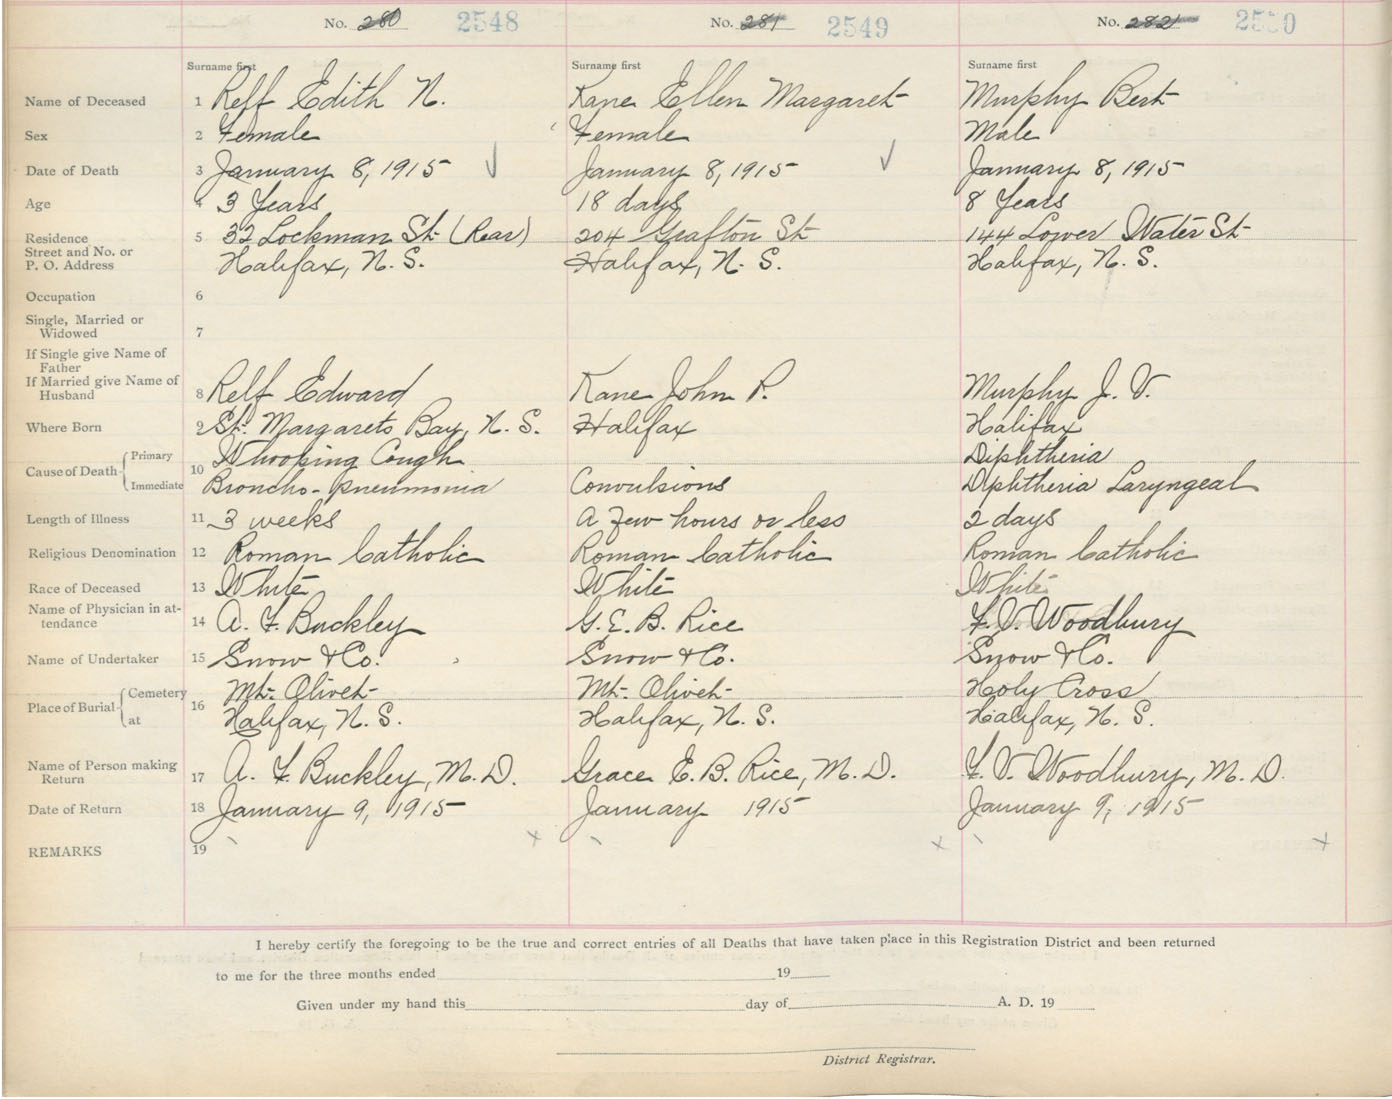 No. 280 2548 No. 281 2549 No. 282 2550
Surname first Surname first Surname first
Name of Deceased 1 Relf Edith N. Kane Ellen Margaret Murphy Bert
Sex 2 Female Female Male
Date of Death 3 January 8, 1915 January 8, 1915 January 8, 1915
Age 4 3 Years 18 days 8 Years
Residence 5 32 Lockman St (Rear) 204 Grafton St 144 Lower Water St
Street and No. or
P. O. Address Halifax, N. S. Halifax, N. S. Halifax, N. S.
Occupation 6
Single, Married or
Widowed 7
If Single give Name of
Father
If Married give Name of
Husband 8 Relf Edward Kane John P. Murphy J. V.
Where Born 9 St. Margarets Bay, N. S. Halifax Halifax
Cause of Death Primary 10 Whooping Cough Diphtheria
Immediate Broncho-pneumonia Convulsions Diphtheria Laryngeal
Length of Illness 11 3 weeks A few hours or less 2 days
Religious Denomination 12 Roman Catholic Roman Catholic Roman Catholic
Race of Deceased 13 White White White
Name of Physician in at-
tendance 14 A. F. Buckley G. E. B. Rice F. V. Woodbury
Name of Undertaker 15 Snow & Co. Snow & Co. Snow & Co.
Place of Burial Cemetery 16 Mt. Olivet Mt. Olivet Holy Cross
at Halifax, N. S. Halifax, N. S. Halifax, N. S.
Name of Person making
Return 17 A. F. Buckley, M. D. Grace E. B. Rice, M. D. F. V. Woodbury, M. D.
Date of Return 18 January 9, 1915 January 1915 January 9, 1915
REMARKS 19
I hereby certify the foregoing to be the true and correct entries of all Deaths that have taken place in this Registration District and been returned
to me for the three months ended 19
Given under my hand this day of A. D. 19
District Registrar.